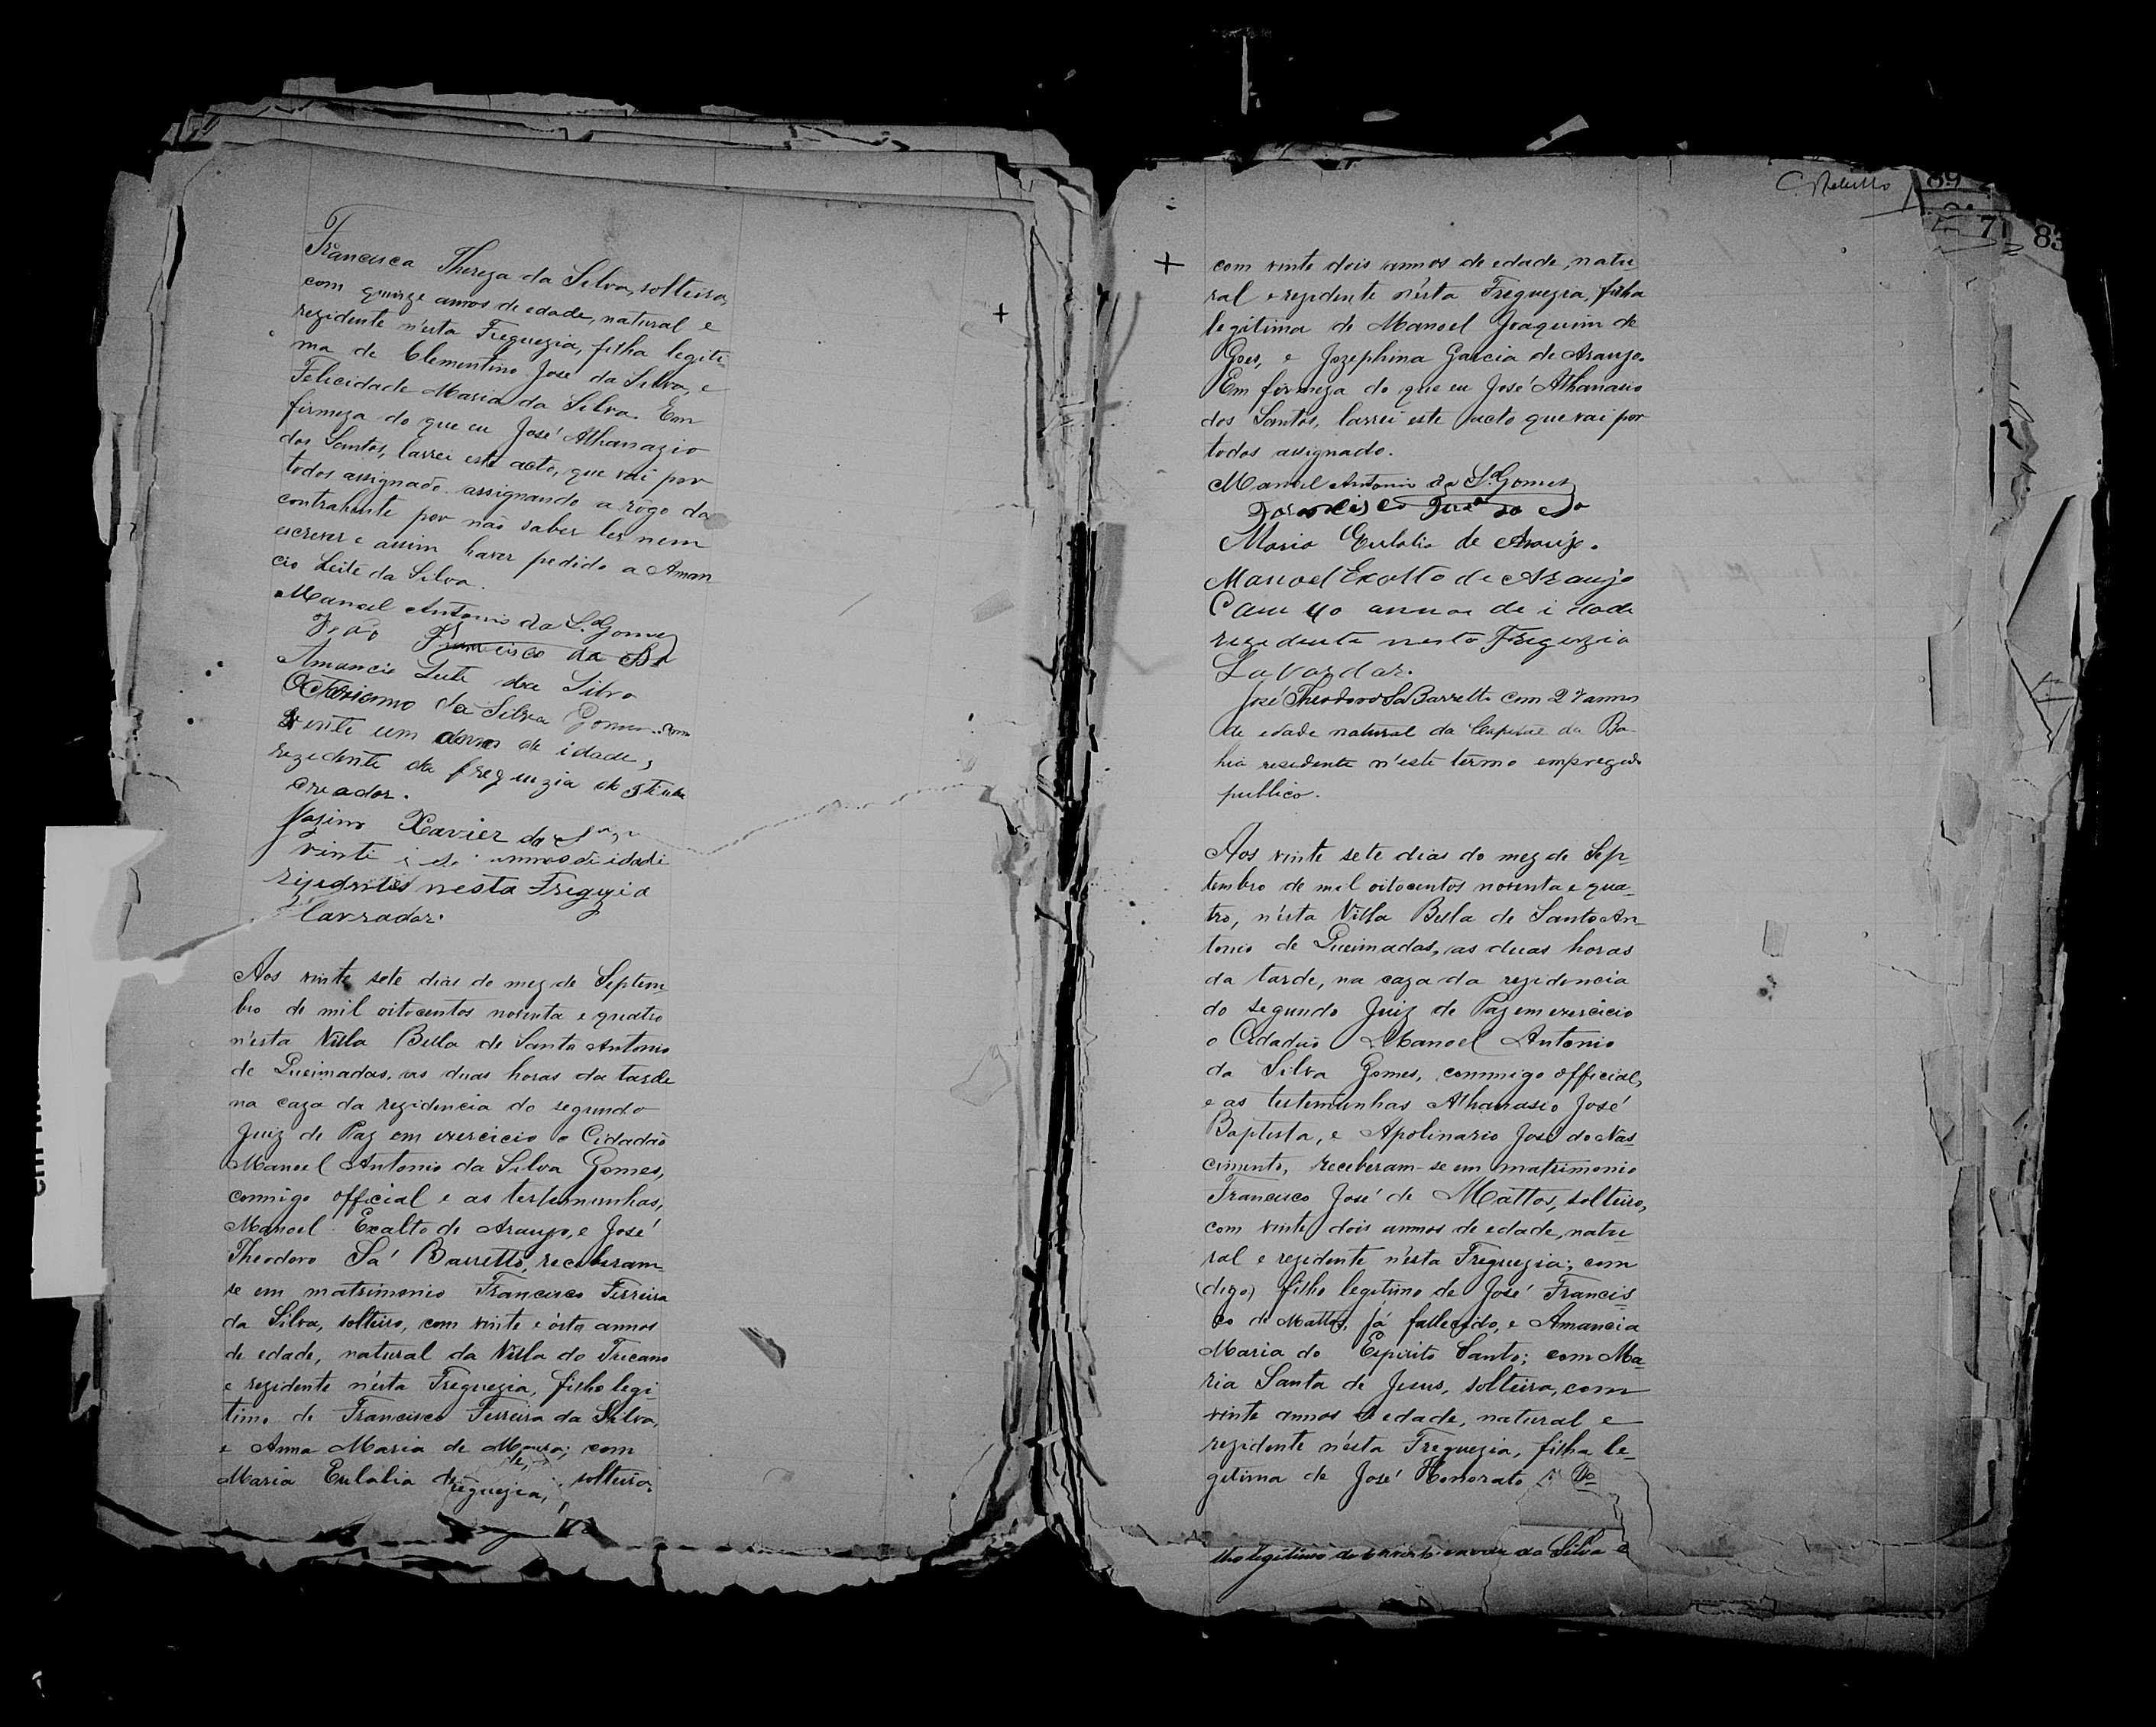 Francisca Thereza da Silva, solteira,
com quinze annos de edade, natural e
rezidente n'esta Freguezia, filha legiti-
ma de Clementino José da Silva, e
Felicidade Maria da Silva. Em
firmeza do que eu José Athanazio
dos Santos, larrei este acto, que vai por
todos assignado assignando a rôgo da
contrahente por não saber ler nem
escrever e assim haver pedido a Aman
cio Leite da Silva.
Manoel Antonio da Sª Gomes
João Francisco da
Amancio Leite da Silva
Octaviano da Silva Gomes com
vente um annos de idade,
rezidente da freguezia do
Creador.
Jozino Xavier da
vinti annos di idadi
rizidentes nesta Freguzia
lavrador.
Aos vinte sete dias do mez de Septem
bro de mil oitocentos noventa e quatro
n'esta Villa Bella de Santo Antonio
de Queimadas, as duas horas da tarde
na caza da rezidencia do segundo
Juiz de Paz em exercicio o Cidadão
Manoel Antonio da Silva Gomes,
commigo official e as testemunhas,
Manoel Exalto de Araujo, e José
Theodoro Sá Barretto, receberam-
se em matrimonio Francisco Ferreira
da Silva, solteiro, com vinte e oito annos
de edade, natural da Villa do Tucano
e rezidente n'esta Freguezia, filho legi-
timo de Francisco Ferreira da Silva,
e Anna Maria de Moura; com
Maria Eulalia de solteira,
eguezia,
C Rebello
89
71
83
com vinte dois annos de edade, natu-
ral e rezidente n'esta Freguezia, filha
legitima de Manoel Joaquim de
Goes, e Jozephina Garcia de Araujo.
Em firmeza do que eu José Athanasio
dos Santos, larrei este acto que vai por
todos assignado.
Manoel Antonio da Sª Gomes
Francisco
Maria Eulalia de Araujo.
Manoel Exalto de Araujo
Com 40 annos de idade
rezidente nesta Freguzia
Lavordor.
José Theodoro Sá Barretto com 27 annos
de edade natural da Capital da Ba-
hia residente n'este termo empregado
publico.
Aos vinte sete dias do mez de Sep-
tembro de mil oitocentos noventa e qua-
tro, n'esta Villa Bella de Santo An-
tonio de Queimadas, as duas horas
da tarde, na caza da rezidencia
do segundo Juiz de Paz em exercicio
o Cidadão Manoel Antonio
da Silva Gomes, commigo official,
e as testemunhas Athanasio José
Baptista, e Apolinario José do Nas-
cimento, receberam-se em matrimonio
Francisco José de Mattos, solteiro,
com vinte dois annos de edade, natu
ral e rezidente n'esta Freguezia; com
(digo) filho legitimo de José Francis-
co de Mattos, já fallecido, e Amancia
Maria do Espirito Santo; com Ma-
ria Santa de Jesus, solteira, com
vinte annos de edade, natural e
rezidente n'esta Freguezia, filha le-
gitima de José Honorato
lho legitimo de da Silva e